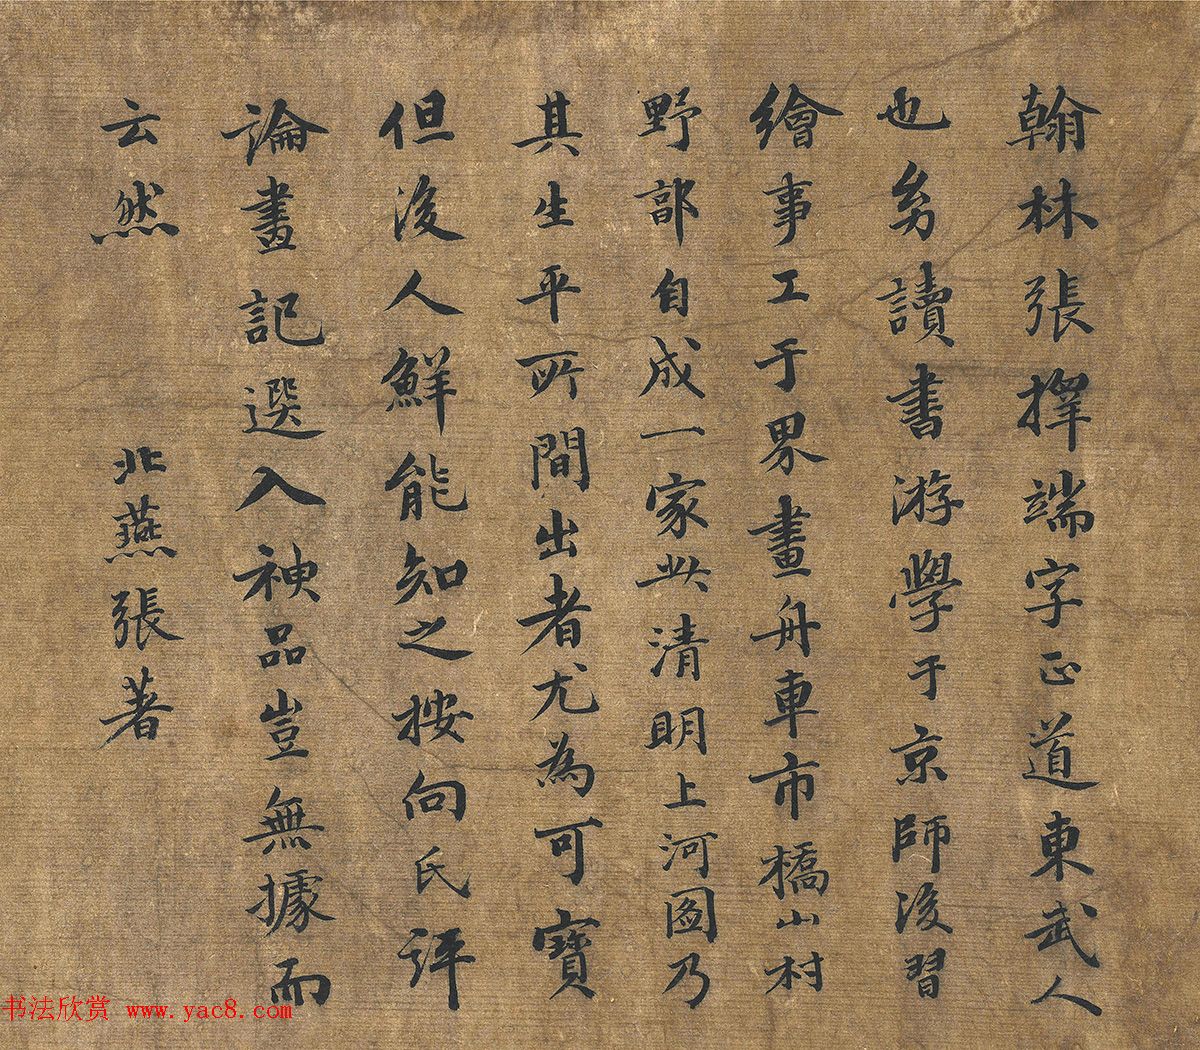 翰林張擇端字正道東武人
也㓜讀書游學于京師後習
繪事工于界畫舟車市橋山村
野自成一家此清明上河圖乃
其生平所間出者尤為可寶
但後人鮮能知之按向氏評
論畫記選入神品豈無據而
云然 北燕張著
书法欣赏 www.yac8.com